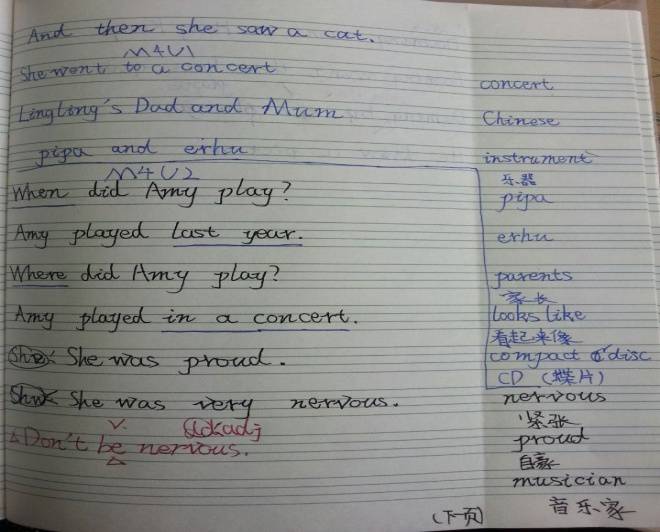 And then she saw a cat.
M4U1
She went to a concert
Lingling's Dad and Mum
pipa and erhu
M4U2
When did Amy play?
Amy played last year.
Where did Amy play?
Amy played in a concert.
She was proud.
She was very nervous.
v.
adj
Don't be nervous.
concert
Chinese
instrument
乐器
pipa
erhu
parents
家长
looks like
看起来像
compact disc
CD (碟片)
nervous
紧张
proud
自豪
musician
音乐家
(下一页)